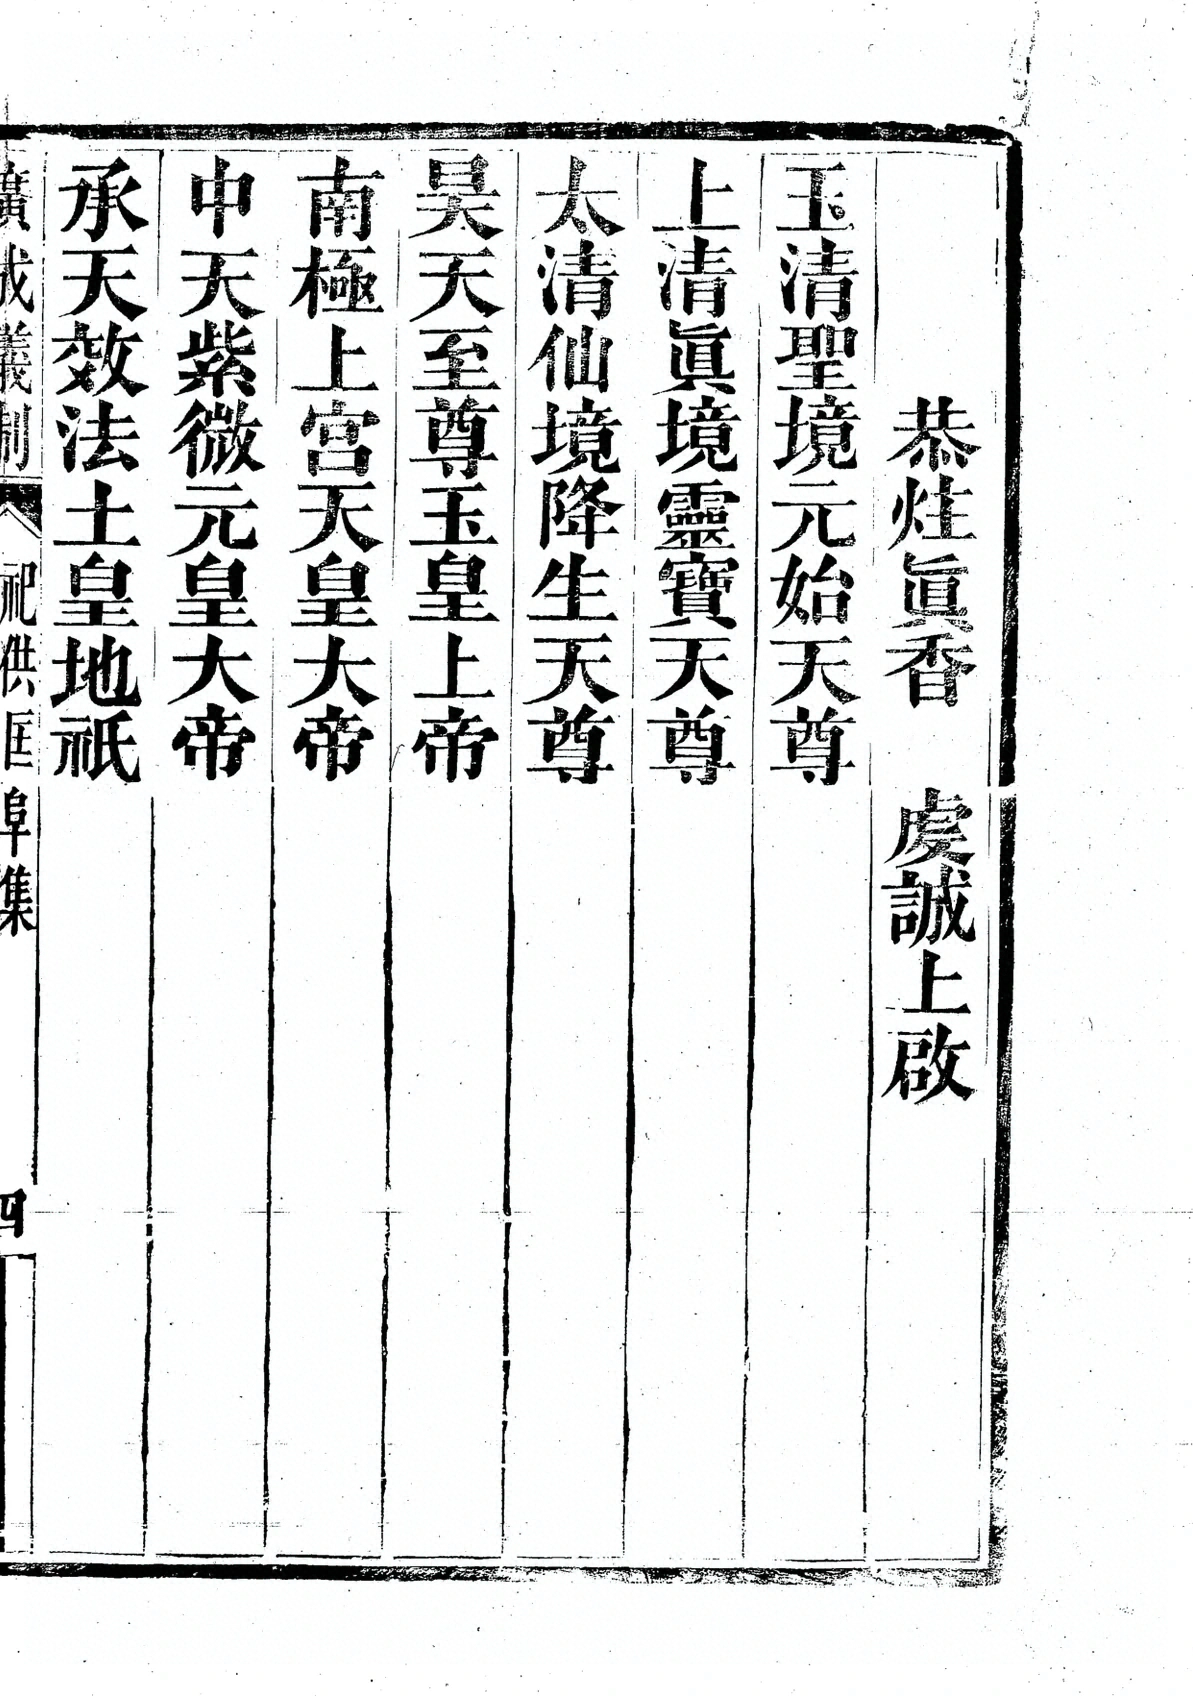 恭炷眞香　虔誠上啟
玉清聖境元始天尊
上清眞境靈寶天尊
太清仙境降生天尊
昊天至尊玉皇上帝
南極上宮天皇大帝
中天紫微元皇大帝
承天效法土皇地祇
廣成儀制　祀供匡阜集　四